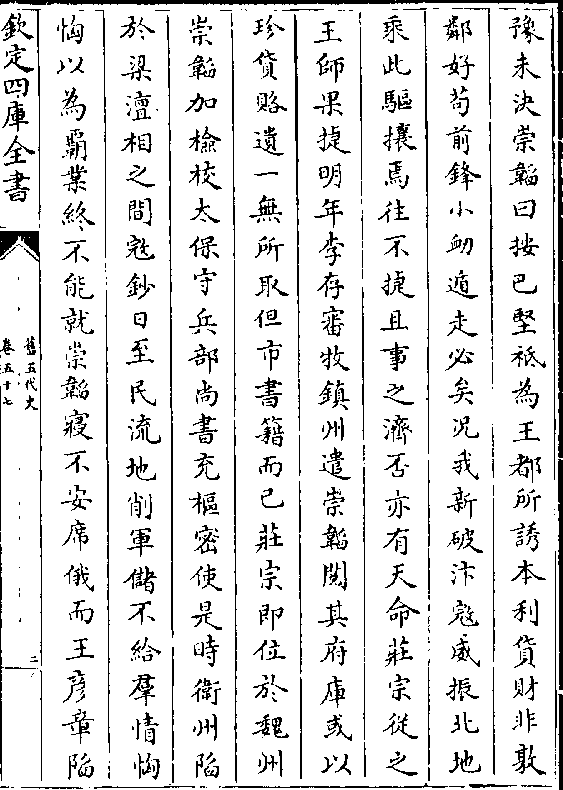 豫未決崇韜曰按巴堅衹為王都所誘本利貨財非敦
鄰好苟前鋒小衂遁走必矣况我新破汴寇威振北地
乘此驅攘焉往不捷且事之濟否亦有天命莊宗從之
王師果捷明年李存審收鎮州遣崇韜閲其府庫或以
珍貨賂遺一無所取但市書籍而已莊宗即位於魏州
崇韜加檢校太保守兵部尚書充樞密使是時衛州陷
於梁澶相之間寇鈔日至民流地削軍儲不給羣情恟
恟以為霸業終不能就崇韜寢不安席俄而王彦章陷
欽定四庫全書
舊五代史
卷五十七
二